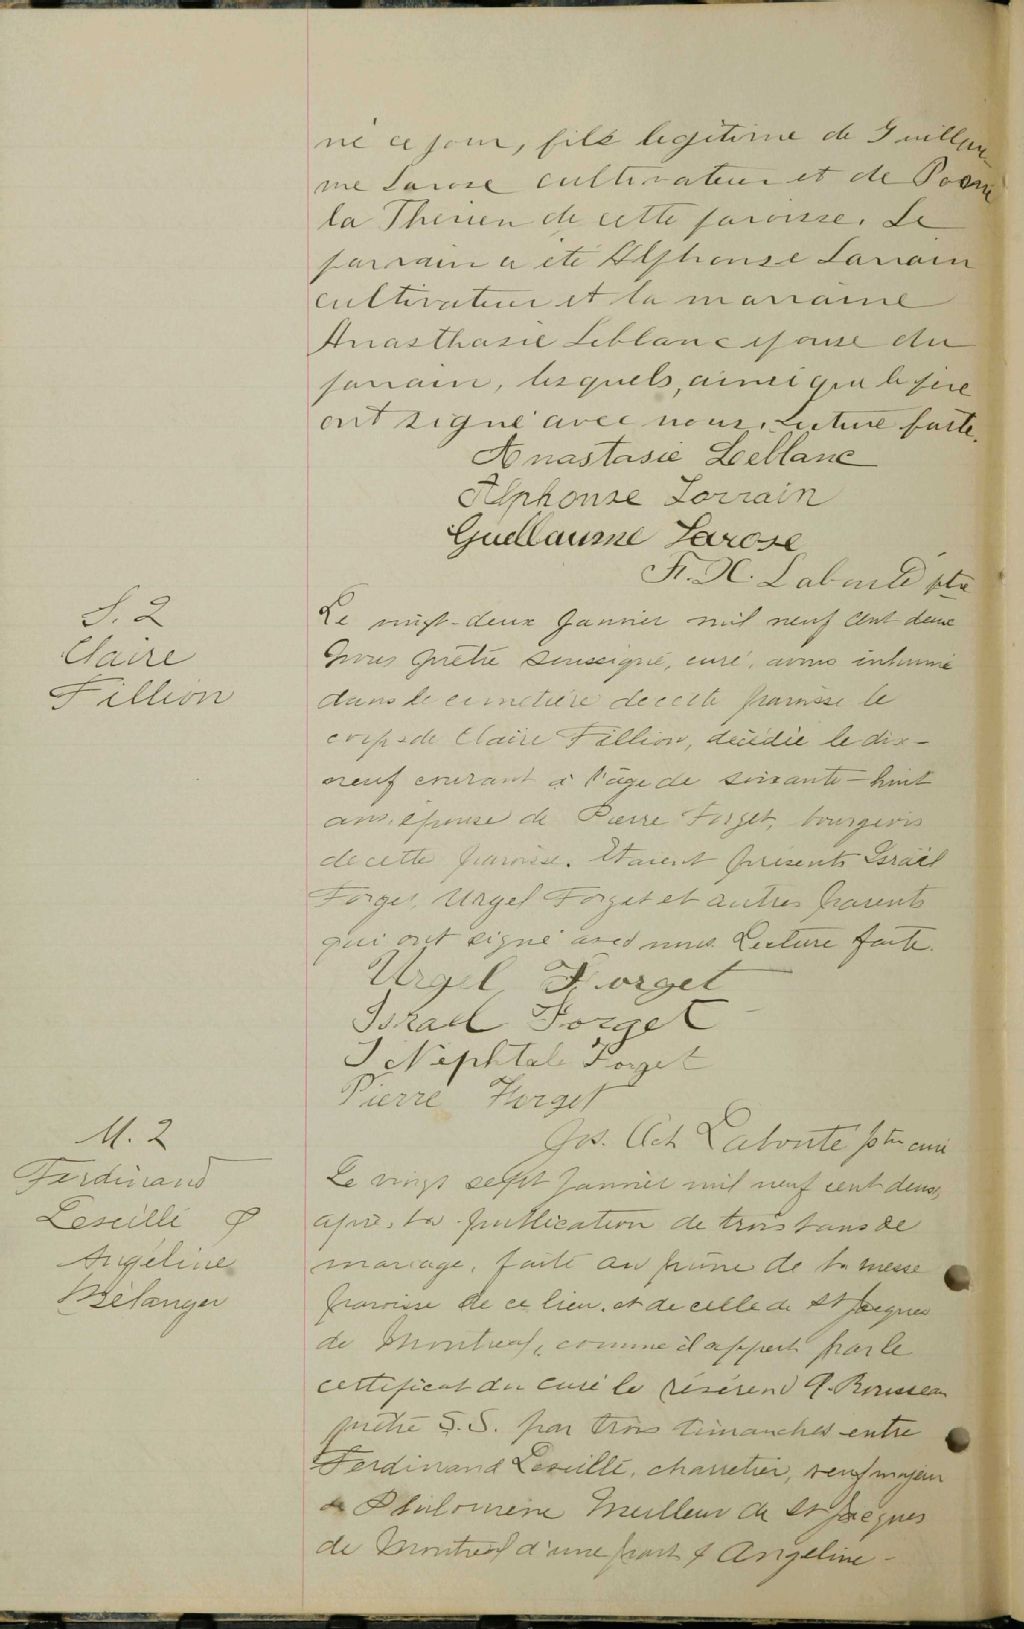 né ce jour, fils légitime de Guillau-
me Larose cultivateur et de Rosai
la Therien de cette paroisse. Le
parrain a été Alphonse Larrain
cultivateur et la marraine
Anasthasie Leblanc epouse du
parrain, lesquels, ainsi que le père
ont signé avec nous. Lecture faite.
Anastasie Leblanc
Alphonse Lorrain
Guillaume Larose
F. X. Labonté ptre
S. 2
Claire
Fillion
Le vingt-deux Janvier mil neuf cent deux
Nous prêtre soussigné, curé, avons inhumé
dans le cimetière de cette paroisse le
corps de Claire Fillion, décédée le dix-
neuf courant à l'âge de soixante-huit
ans, épouse de Pierre Forget, bourgeois
de cette paroisse. Etaient présents Israël
Forget, Urgel Forget et autres parents
qui ont signé avec nous. Lecture faite.
Urgel Forget
Israel Forget
J Nephtali Forget
Pierre Forget
Jos. Ach Labonté ptre curé
M. 2
Ferdinand
Leveillé &
Angéline
Bélanger
Le vingt sept Janvier mil neuf cent deux,
après la publication de trois bans de
mariage, faite au prône de la messe
paroisse de ce lieu, et de celle de St Jacques
de Montréal, comme il appert par le
certificat du curé le révérend Rousseau
prêtre S.S. par trois dimanches entre
Ferdinand Leveillé, charretier, veuf majeur
de Philomène Meilleur de St Jacques
de Montréal d'une part & Angeline -